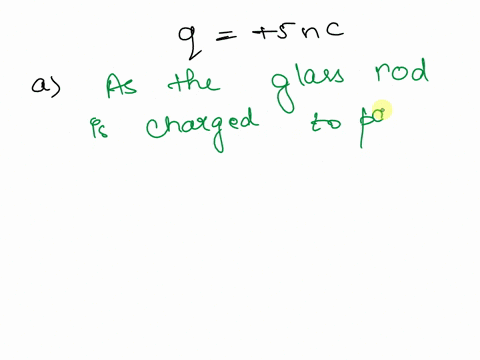 q = +5nC
a) As the glass rod
is charged to po